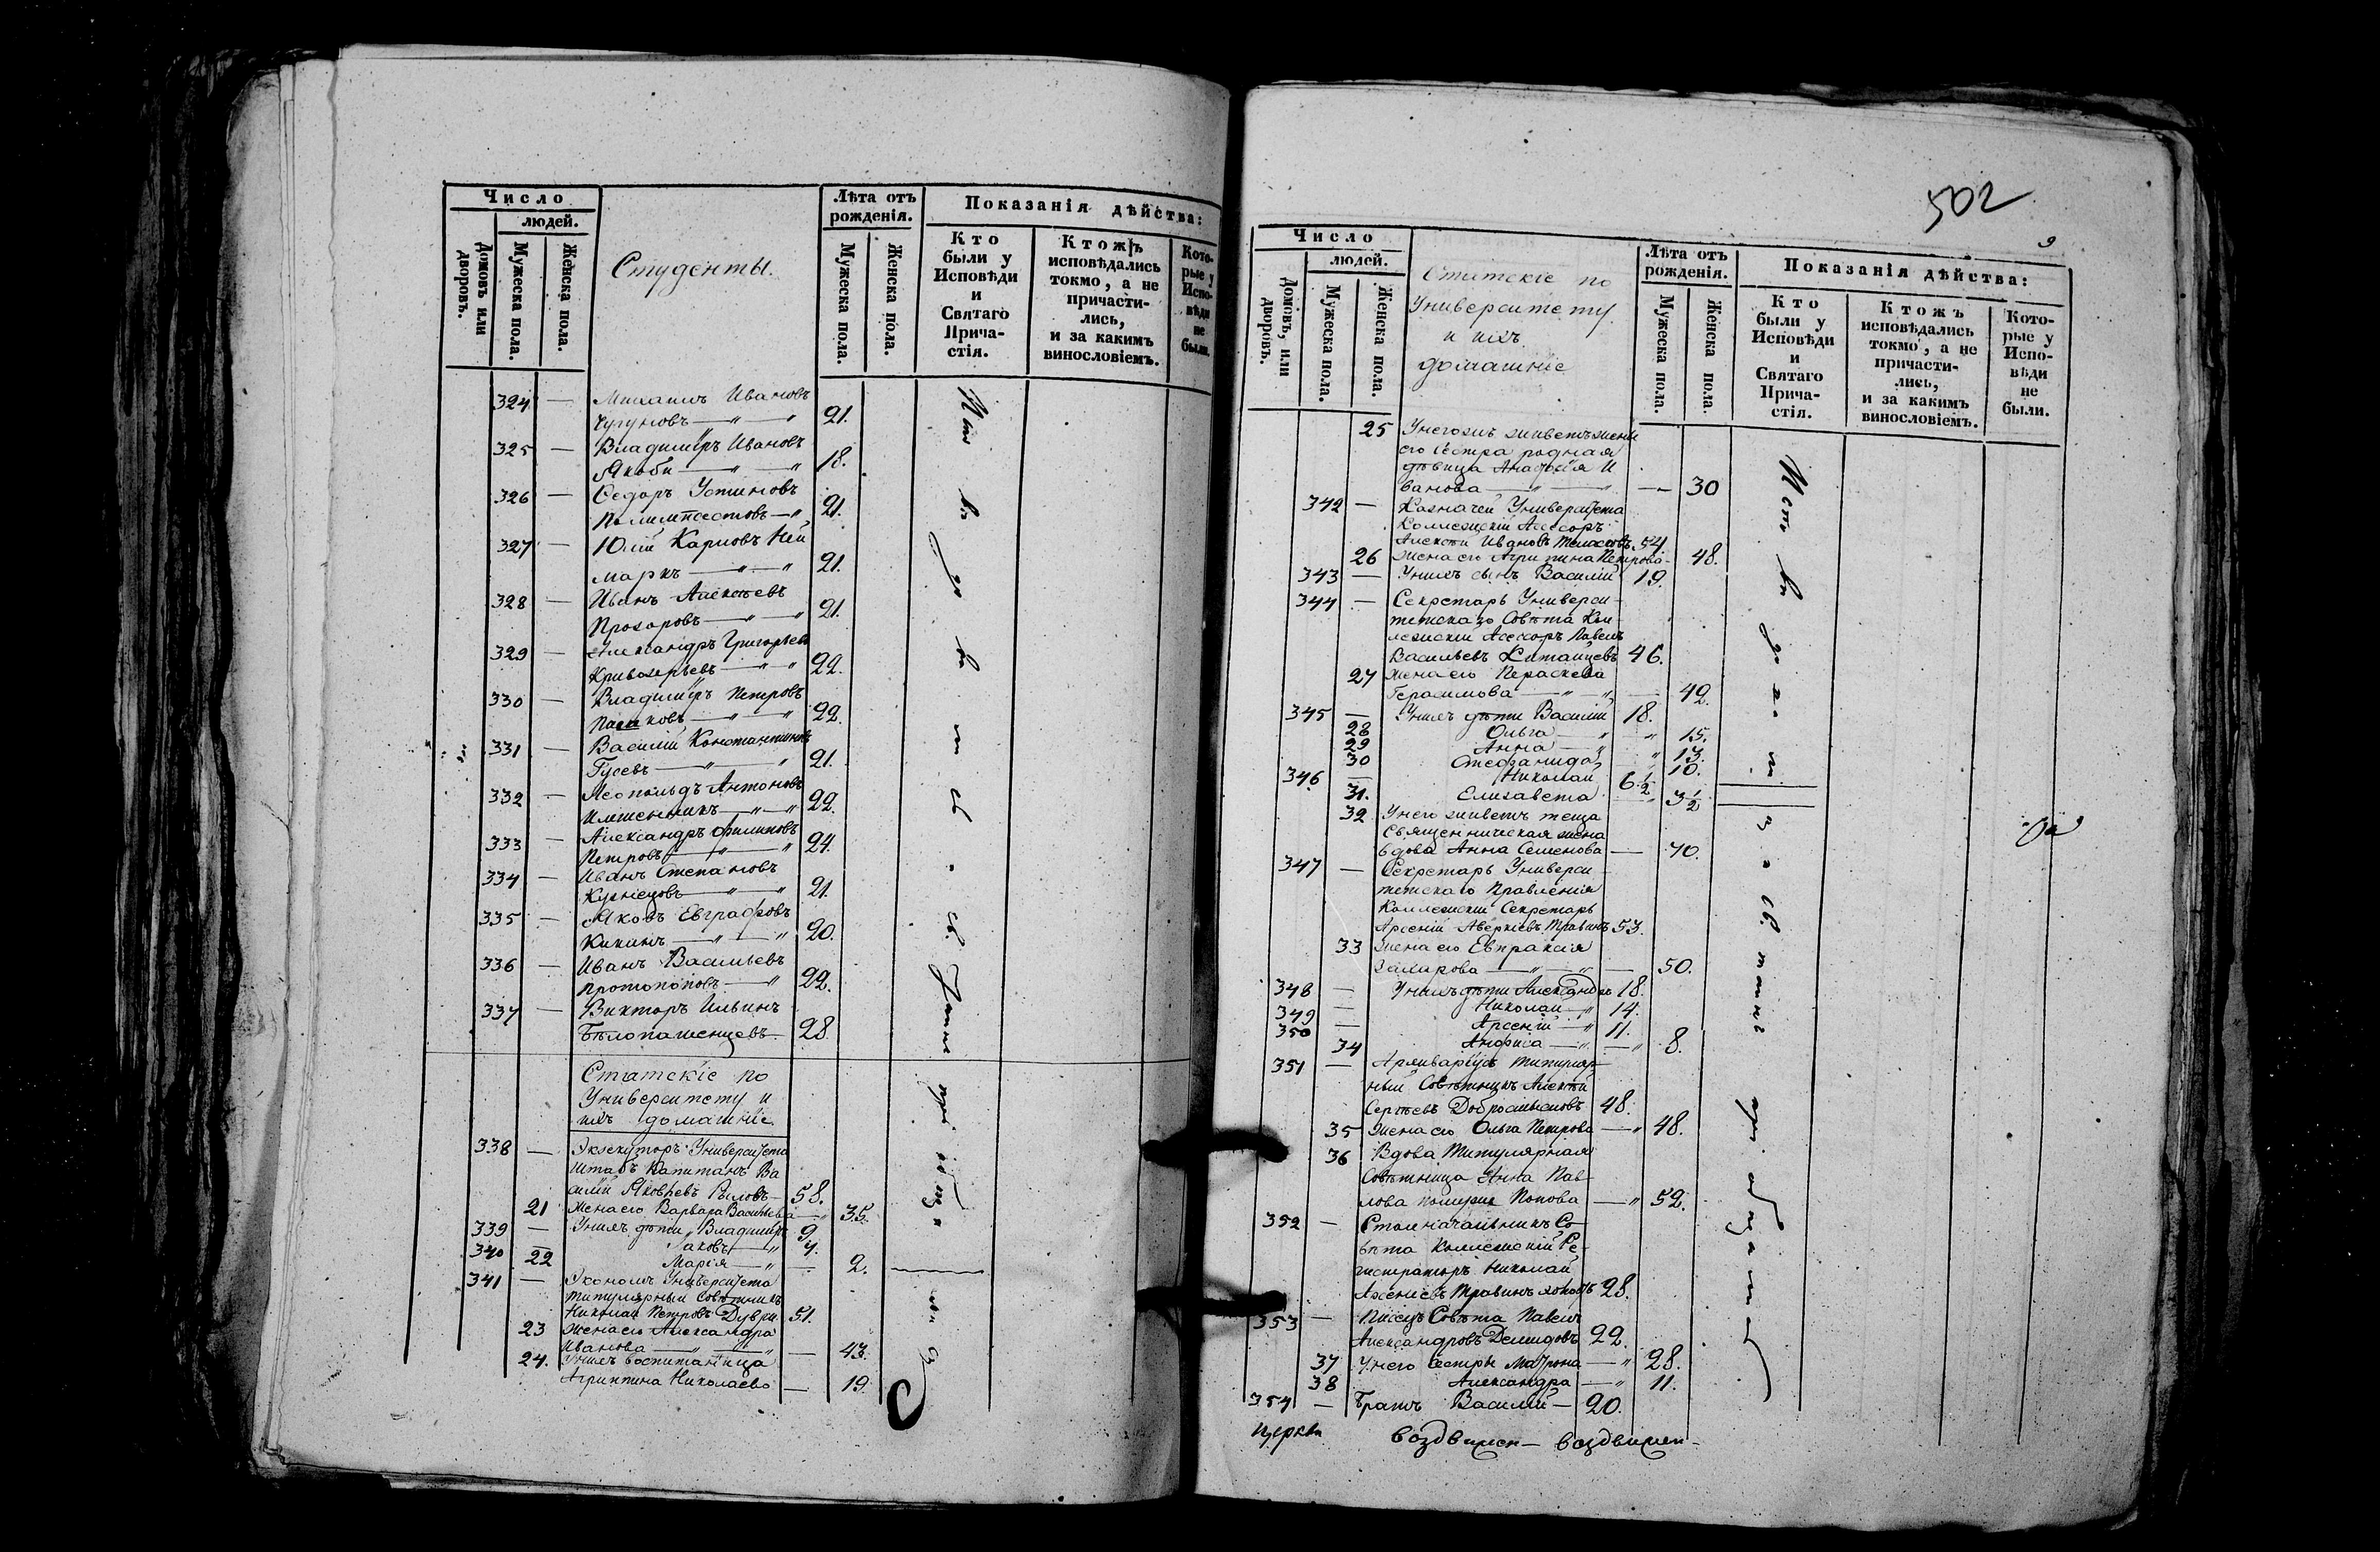 Число
людей.
Домовъ или дворовъ.
Мужеска пола.
Женска пола.
Студенты.
Лѣта отъ рожденія.
Мужеска пола.
Женска пола.
Показанія дѣйства:
Кто были у Исповѣди и Святаго Прича-стія.
Ктожъ исповѣдались токмо, а не причасти-лись, и за какимъ винословіемъ.
Кото-рые у Испо-вѣди не были.
324 — Михаилъ Ивановъ
Чугуновъ — " — " 21.
325 — Владиміръ Ивановъ
Якоби — " — " 18.
326 — Ѳедоръ Устиновъ
Полимпсестовъ — " 21.
327 — Юлій Карловъ Ней
маркъ — " — " 21.
328 — Иванъ Алексѣевъ
Прозоровъ — " — " 21.
329 — Александръ Григорьевъ
— " — " 22.
330 — Владиміръ Петровъ
Пашковъ — " — " 22.
331 — Василій Константиновъ
Гусевъ — " — " 21.
332 — Леопольдъ Антоновъ
— " — " 22.
333 — Александръ Филиповъ
Петровъ — " — " 24.
334 — Иванъ Степановъ
Кузнецовъ — " — " 21.
335 — Яковъ Евграфовъ
Кикинъ — " — " 20.
336 — Иванъ Васильевъ
Протопоповъ — " 22.
337 — Викторъ Ильинъ
Бѣлопашенцевъ 28.
Статскіе по
Университету и
ихъ домашніе.
338 — Экзекуторъ Университета
Штабъ Капитанъ Ва
силій Яковлевъ Рыловъ — 58.
21 Жена его Варвара Васильева 35.
339 — У нихъ дѣти Владиміръ 9
340 — Яковъ — "
22 Марія — " — 2.
341 — Экономъ Университета
Титулярный Совѣтникъ
Николай Петровъ 51.
23 Жена его Александра
Иванова — " — " — 43.
24. У нихъ воспитаница
Агрипина Николаева — 19.
502
9
Число
людей.
Домовъ, или дворовъ.
Мужеска пола.
Женска пола.
Статскіе по
Университету
и ихъ
домашніе
Лѣта отъ рожденія.
Мужеска пола.
Женска пола.
Показанія дѣйства:
Кто были у Исповѣди и Святаго Прича-стія.
Ктожъ исповѣдались токмо, а не причасти-лись, и за какимъ винословіемъ.
Кото-рые у Испо-вѣди не были.
25 У него жъ живетъ жены
его сестра родная
дѣвица И
ванова — " — " — 30
342 — Казначей Университета
Коллежскій Ассесоръ
Алексѣй Ивановъ 54
26 Жена его Агрипина Петрова 48.
343 — У нихъ сынъ Василій 19.
344 — Секретарь Универси
тетскаго Совѣта Кол
лежскій Асессоръ Павелъ
Васильевъ Китайцевъ 46.
27 Жена его Параскева
Герасимова — " — " — 42.
345 — У нихъ дѣти Василій 18.
28 Ольга — " " 15.
29 Анна — " " 13.
30 Стефанида " 10.
346 — Николай 6 1/2
31. Елизавета 3 1/2
32 У него живетъ теща
Священническая жена
вдова Анна Семенова — 70.
347 — Секретарь Универси
тетскаго Правленія
Коллежскій Секретарь
Арсеній Аверкіевъ Травинъ 53.
33 Жена его Евпраксія
Захарова — " — " — 50.
348 — У нихъ дѣти Александръ 18.
349 — Николай — " 14.
350 — Арсеній — " 11.
34 Анфиса — " — " 8.
351 — Архиваріусъ Титуляр
ный Совѣтникъ Алексѣй
Сергѣевъ Добросмысловъ 48.
35 Жена его Ольга Петрова — " 48.
36 Вдова Титулярная
Совѣтница Анна Пав
лова Попова — " 52.
352 — Столначальникъ Со
вѣта Коллежскій Ре
гистраторъ Николай
Арсеніевъ Травинъ холостъ 28.
353 — Писецъ Совѣта Павелъ
Александровъ Демидовъ 22.
37 У него сестры Матрона — " 28.
38 Александра — " 11.
354 — Братъ Василій — 20.
церкви воздвижен— воздвижен—